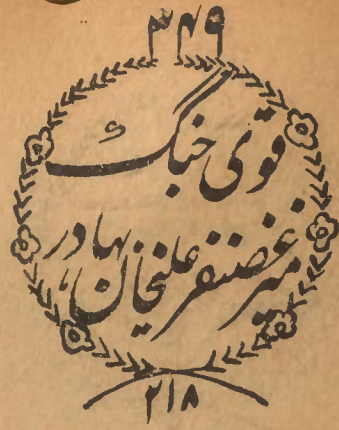 ۳۴۹
قوی جنگ
میر غضنفر علیخان بہادر
۲۱۸